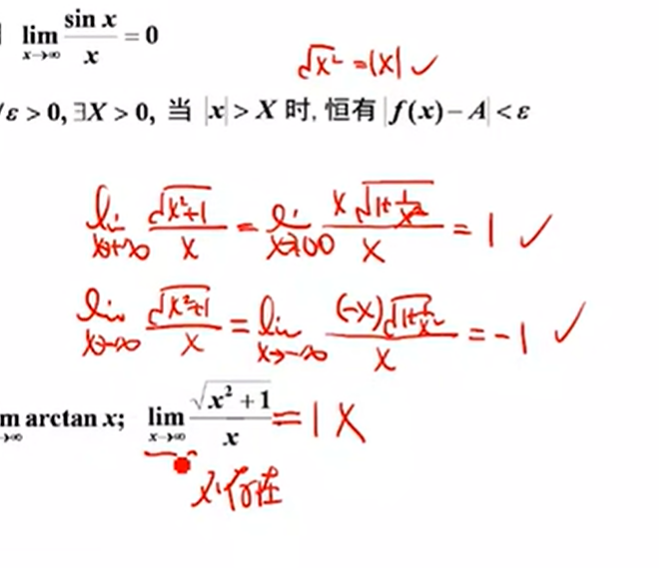 lim x→∞ sin x / x = 0
√x² = |x| ✓
∀ε > 0, ∃X > 0, 当 |x| > X 时, 恒有 |f(x) − A| < ε
lim x→+∞ √x²+1 / x = lim x→+∞ x√1+1/x² / x = 1 ✓
lim x→−∞ √x²+1 / x = lim x→−∞ (−x)√1+1/x² / x = −1 ✓
m →∞ arctan x; lim x→∞ √x²+1 / x = 1 ×
不存在